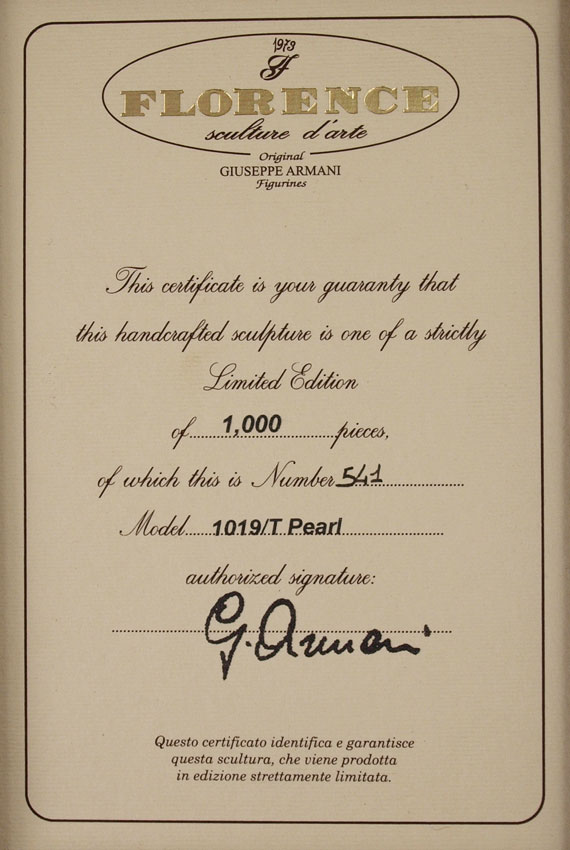 1973
FLORENCE
sculture d'arte
Original
GIUSEPPE ARMANI
Figurines
This certificate is your guaranty that
this handcrafted sculpture is one of a strictly
Limited Edition
of 1,000 pieces,
of which this is Number 541
Model 1019/T Pearl
authorized signature:
G. Armani
Questo certificato identifica e garantisce
questa scultura, che viene prodotta
in edizione strettamente limitata.